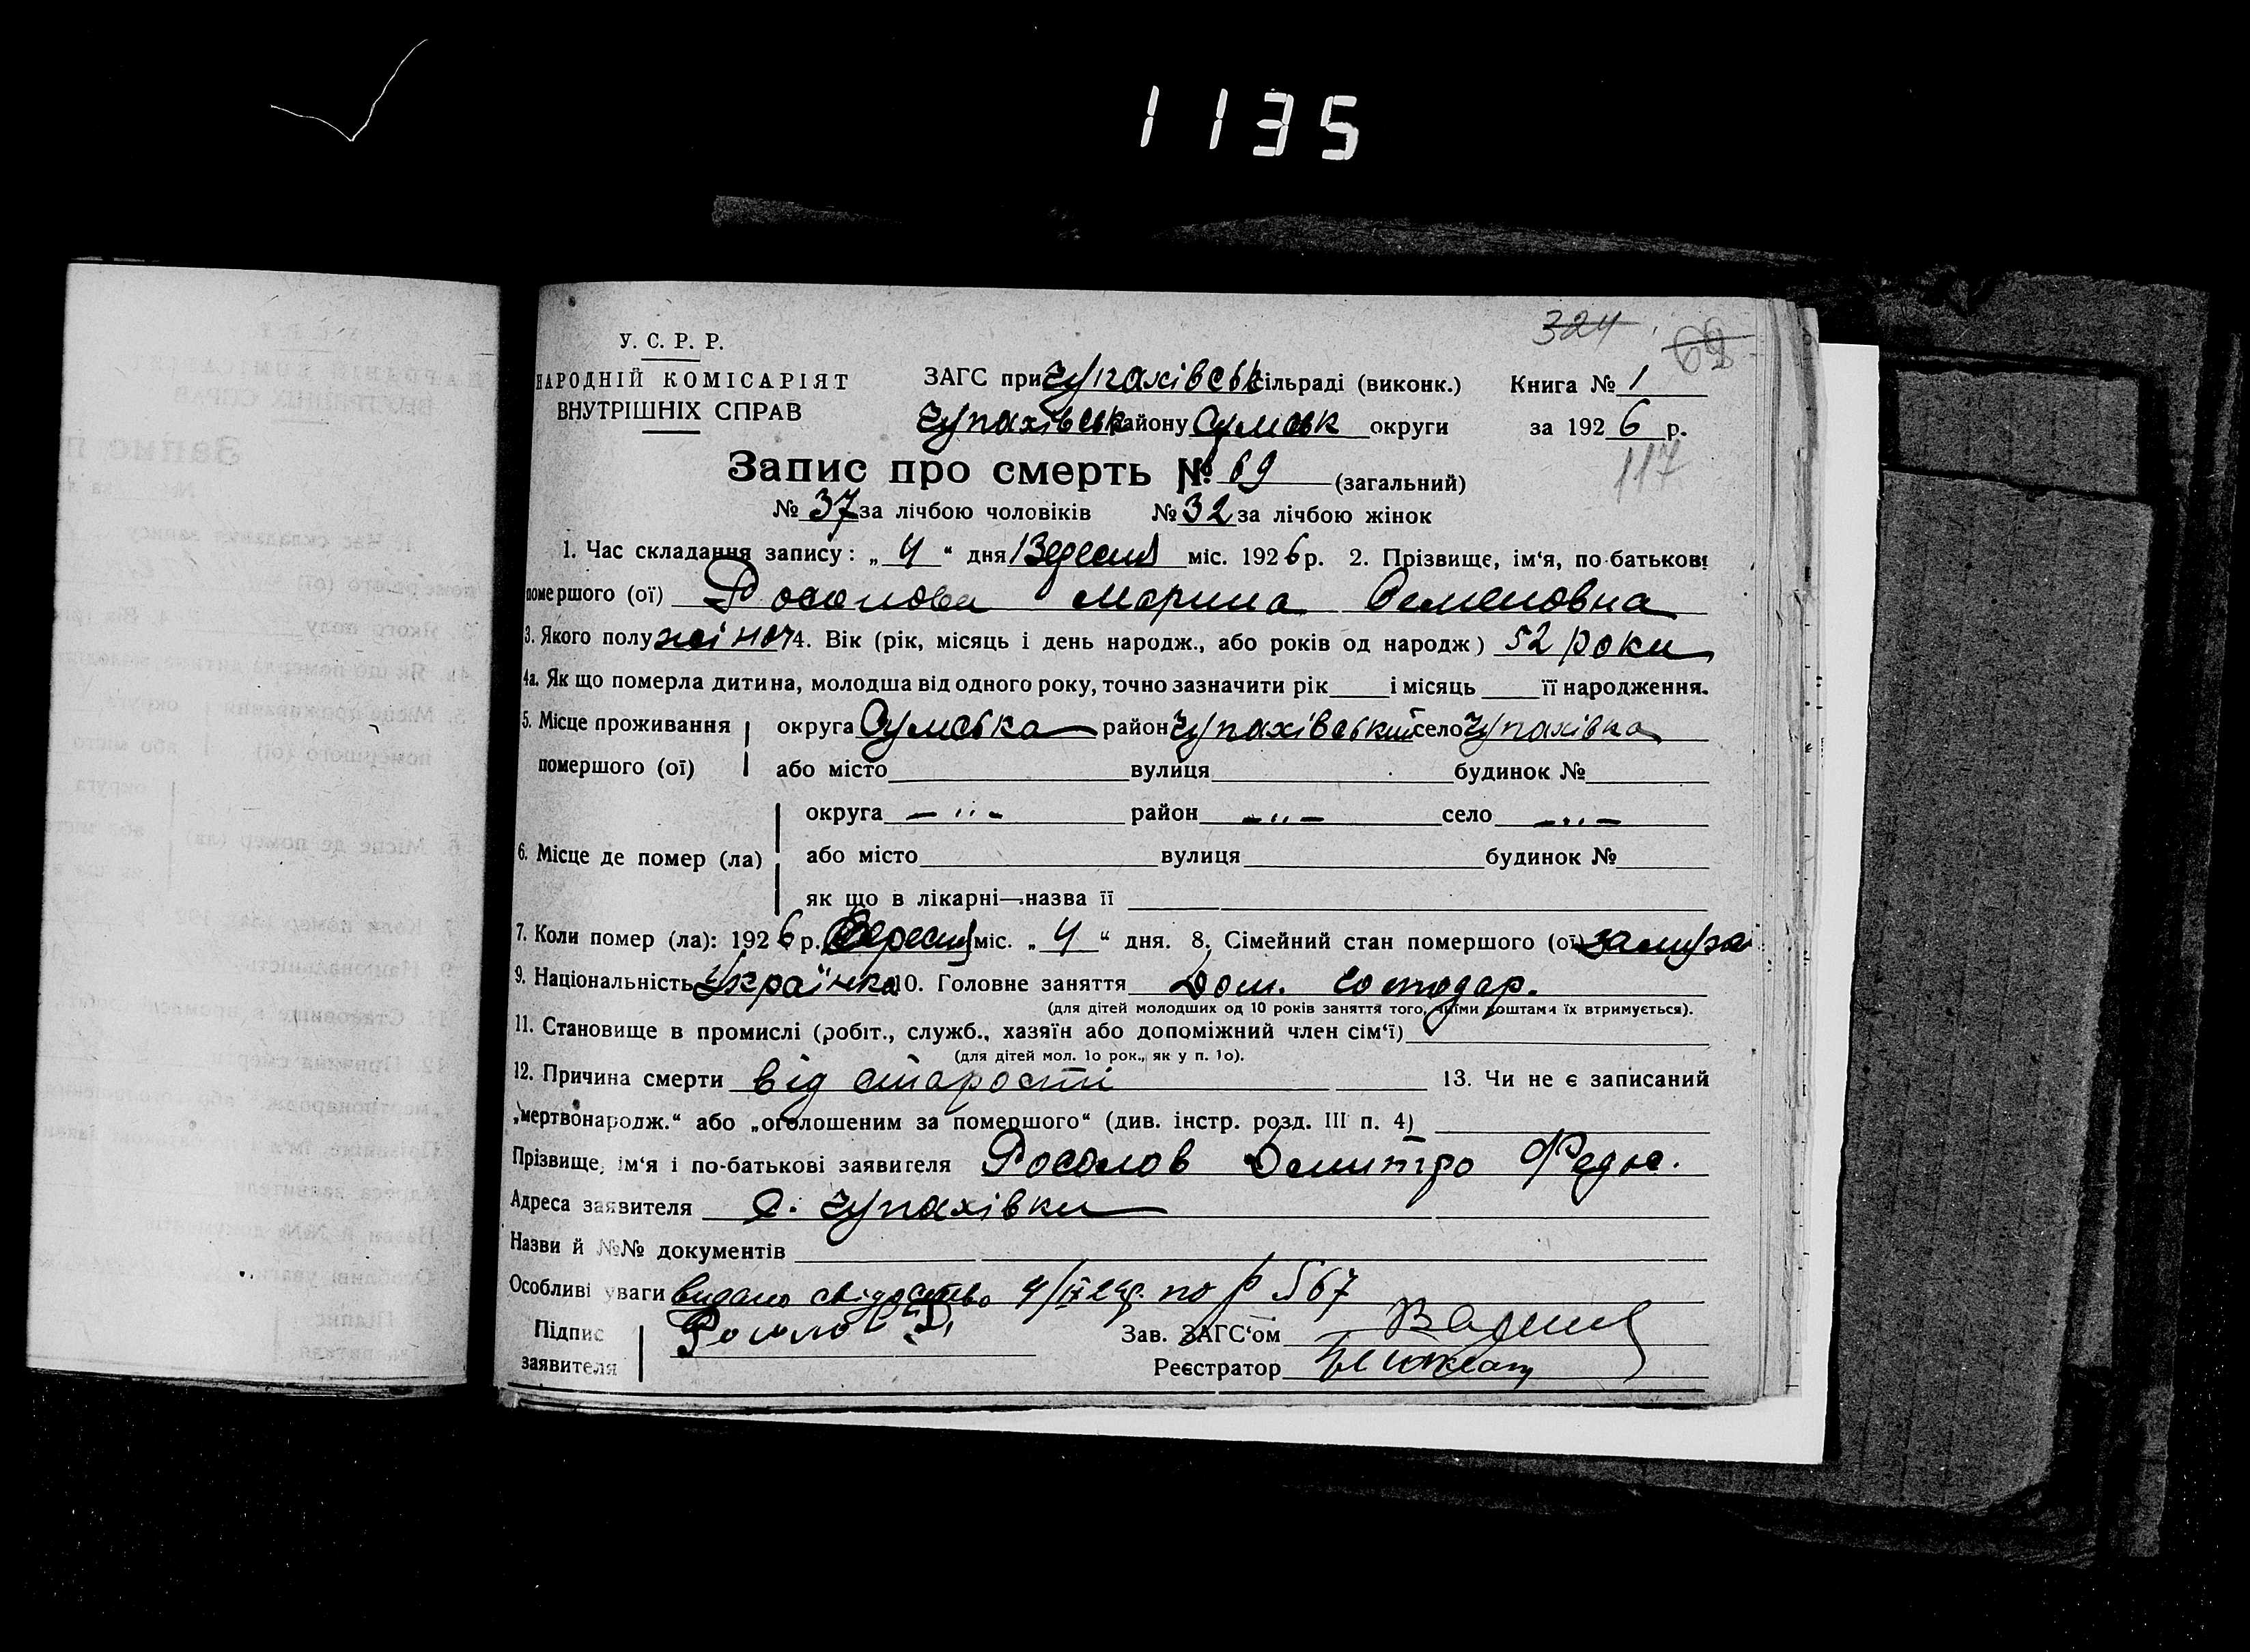 1135
324
У. С. Р. Р.
НАРОДНІЙ КОМІСАРІЯТ
ВНУТРІШНІХ СПРАВ
ЗАГС при Чупахівськ сільраді (виконк.) Книга № 1
Чупахівськ району Сумськ округи за 1926 р.
117
Запис про смерть № 69 (загальний)
№ 37 за лічбою чоловіків № 32 за лічбою жінок
1. Час складання запису: „ 4 “ дня Вересня міс. 1926 р. 2. Прізвище, ім‘я, по-батькові
помершого (ої) Росолова Марина Семеновна
3. Якого полу жіноч 4. Вік (рік, місяць і день народж., або років од народж) 52 роки
4а. Як що померла дитина, молодша від одного року, точно зазначити рік і місяць її народження.
5. Місце проживання округа Сумська район Чупахівський село Чупахівка
помершого (ої) або місто вулиця будинок №
округа — „ — район — „ — село — „ —
6. Місце де помер (ла) або місто вулиця будинок №
як що в лікарні—назва її
7. Коли помер (ла): 1926 р. Вересня міс. „ 4 “ дня. 8. Сімейний стан помершого (ої) замужня
9. Національність Українка 10. Головне заняття Дом. господар.
(для дітей молодших од 10 років заняття того, чиїми коштами їх втримується).
11. Становище в промислі (робіт., служб., хазяїн або допоміжний член сім‘ї)
(для дітей мол. 1о рок., як у п. 1о).
12. Причина смерти від старости 13. Чи не є записаний
„мертвонародж.“ або „оголошеним за помершого“ (див. інстр. розд. III п. 4)
Прізвище, ім‘я і по-батькові заявителя Росолов Дмитро Федос.
Адреса заявителя с. Чупахівки
Назви й №№ документів
Особливі уваги видано свідоцтво 4/IX по р 567
Підпис заявителя Росолов Д.
Зав. ЗАГС‘ом
Реєстратор